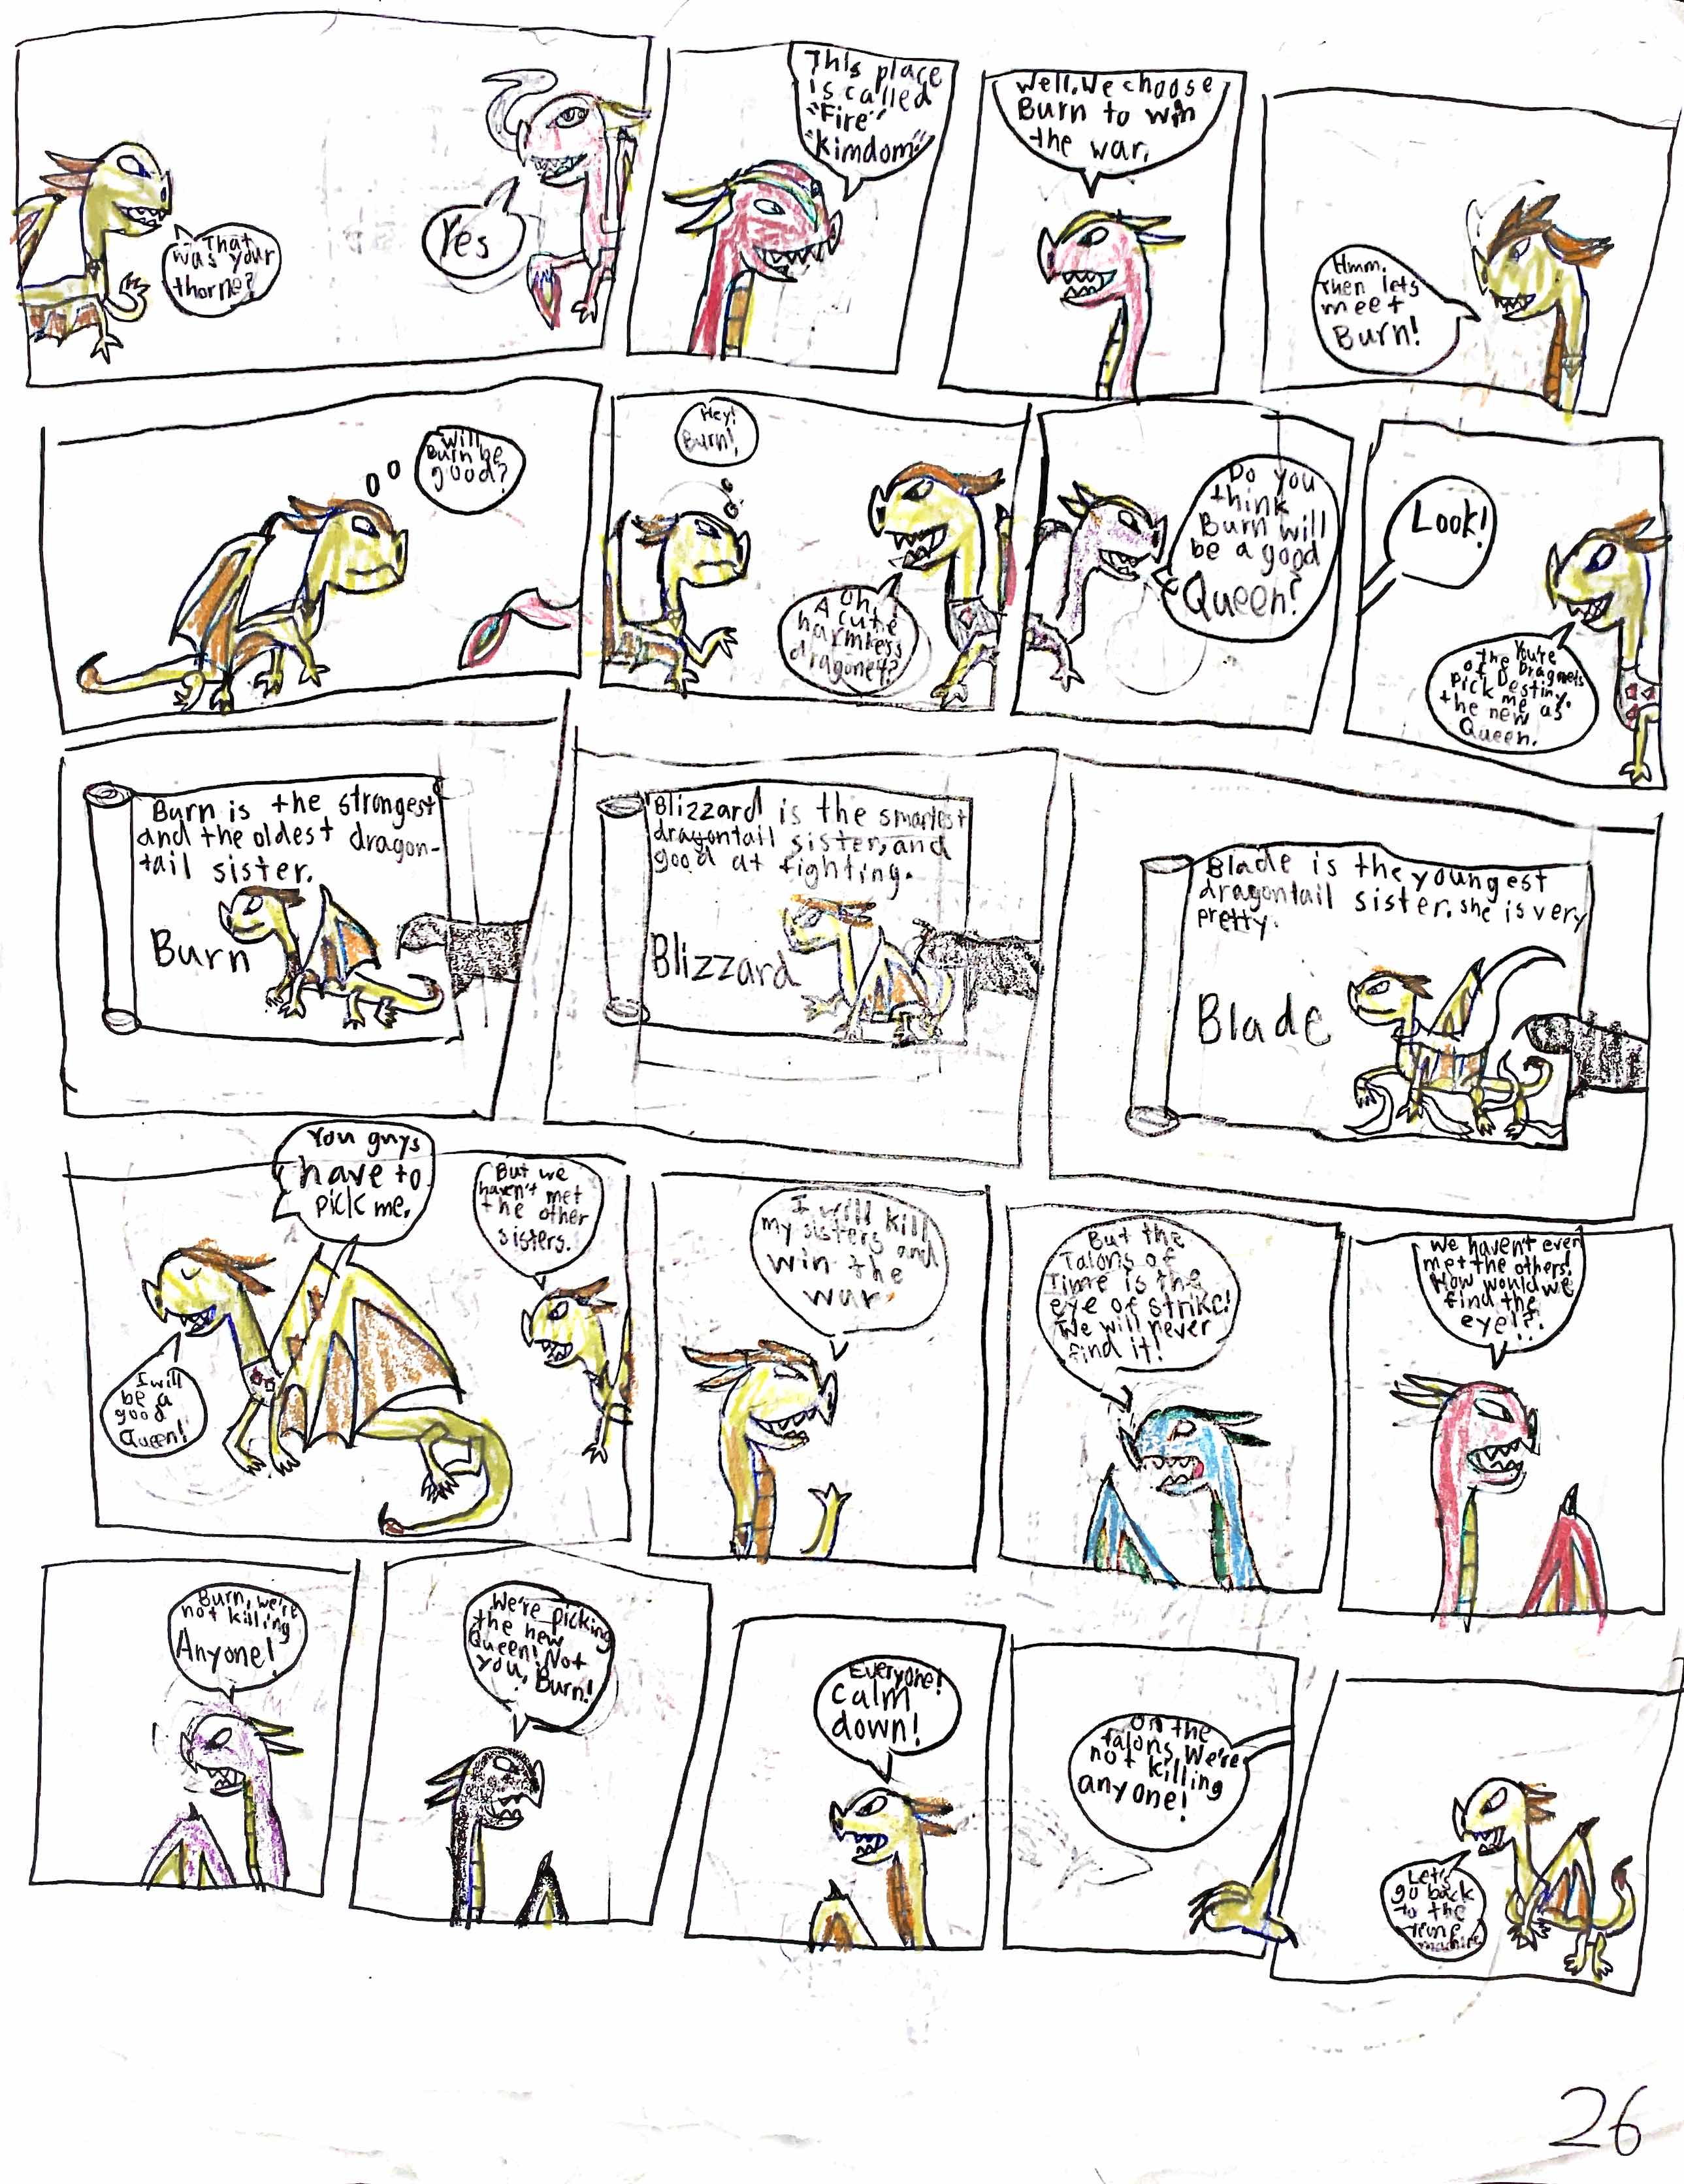 That
was your
thorne?
Yes
This place
is called
"Fire"
"kimdom."
Well, We choose
Burn to win
the war.
Hmm.
Then lets
meet
Burn!
Will
Burn be
good?
Hey!
Burn!
Oh,
A cute
harmless
dragonet?
Do you
think
Burn will
be a good
Queen?
Look!
You're
the Dragnets
of Destiny.
Pick me as
the new
Queen.
Burn is the strongest
and the oldest dragon-
tail sister.
Burn
Blizzard is the smartest
dragontail sister, and
good at fighting.
Blizzard
Blade is the youngest
dragontail sister. she is very
pretty.
Blade
You guys
have to
pick me.
I will
be a
good
Queen!
But we
haven't met
the other
sisters.
I will kill
my sisters and
win the
war.
But the
Talons of
Time is the
eye of strike!
We will never
find it!
We haven't even
met the others.
How would we
find the
eye!?!
Burn, we're
not killing
Anyone!
We're picking
the new
Queen! Not
you, Burn!
Everyone!
Calm
down!
On the
talons, We're
not killing
anyone!
Let's
go back
to the
machine
26